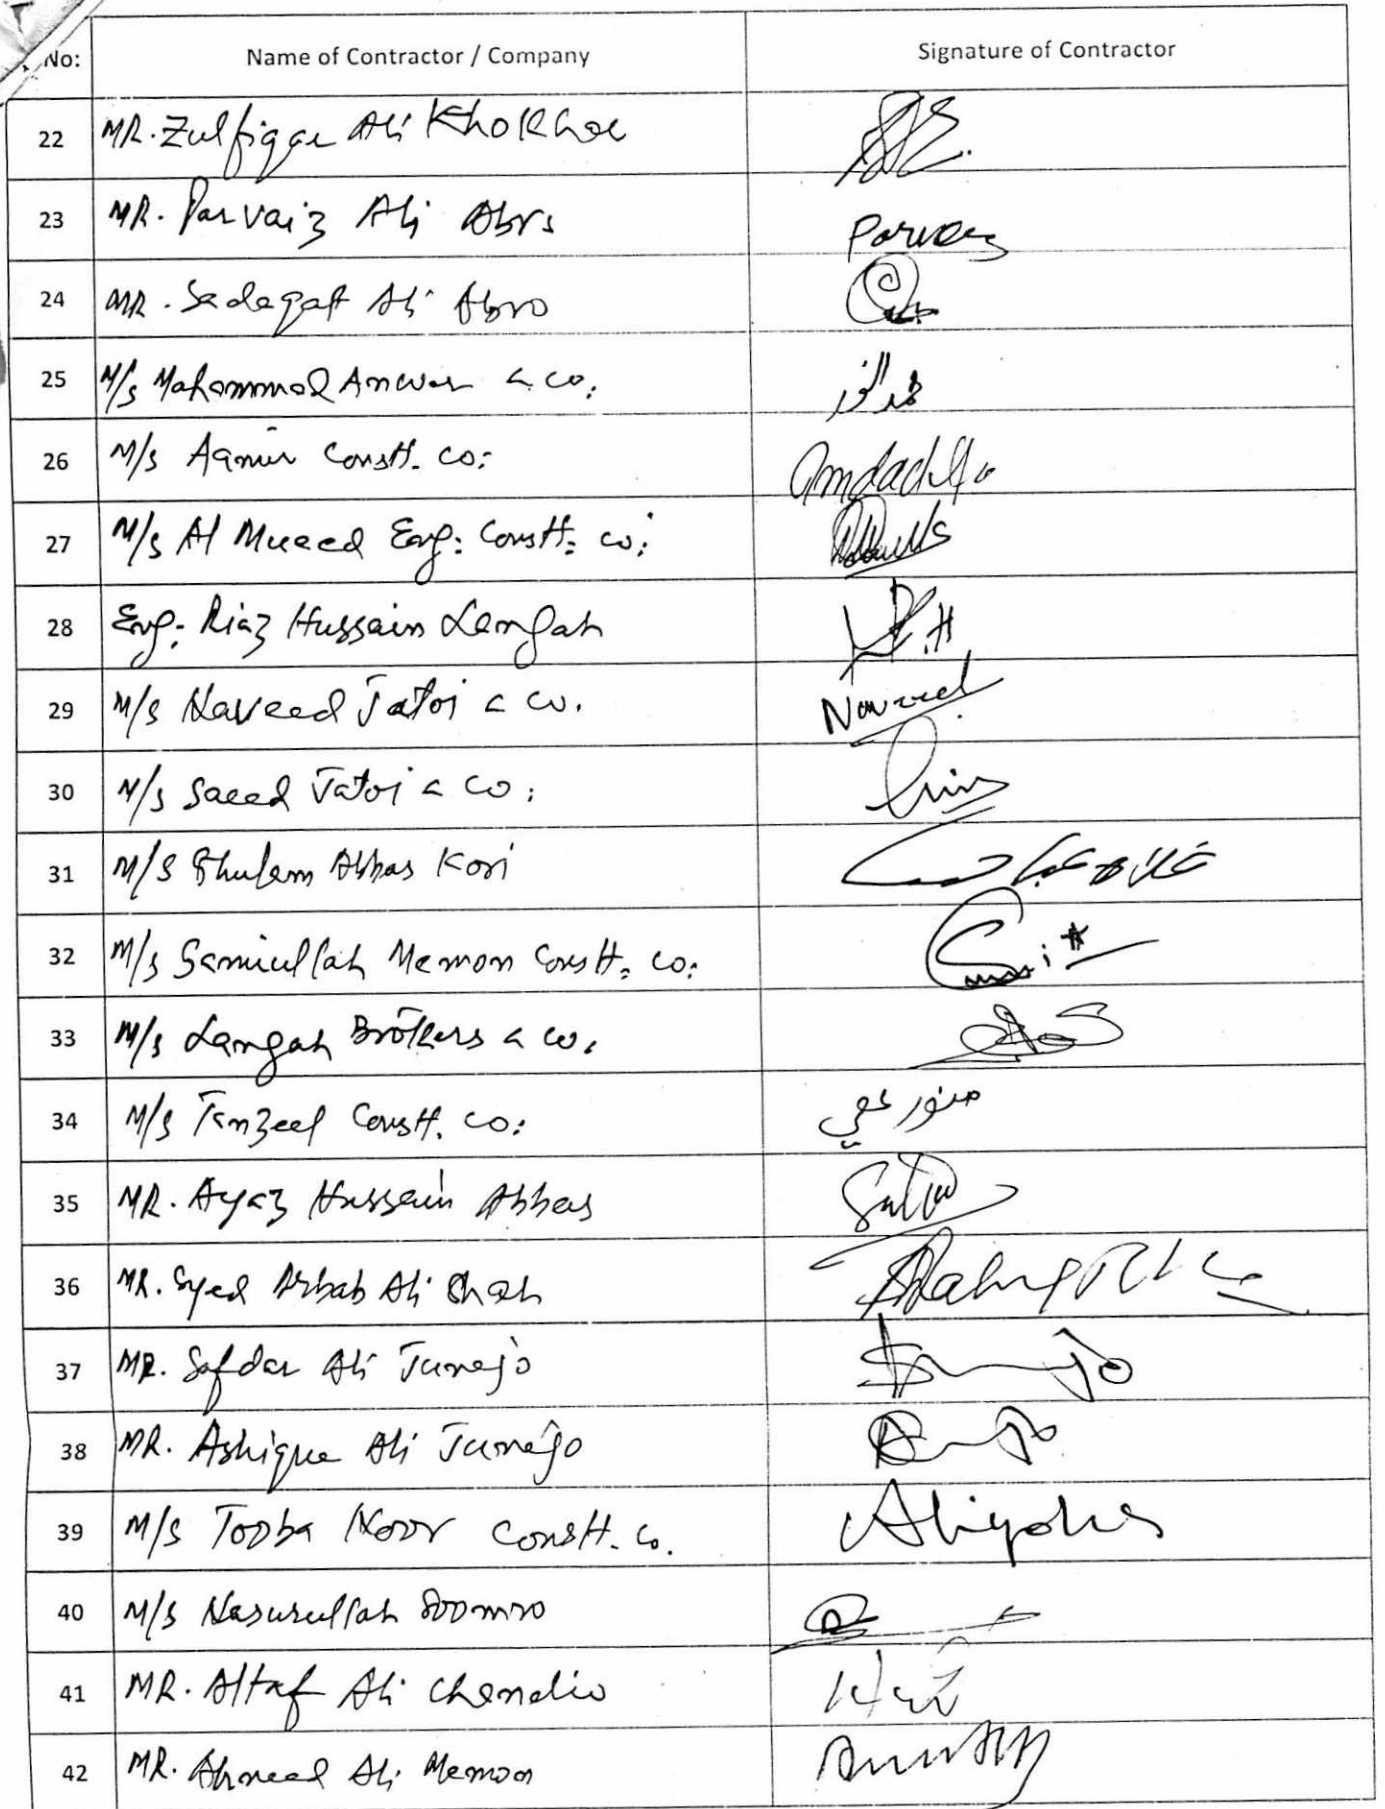 No: Name of Contractor / Company Signature of Contractor
22 MR. Zulfiqar Ali Khokhar
23 MR. Parvaiz Ali Abro Parvez
24 MR. Sadaqat Ali Abro
25 M/s Mohammad Anwar & co:
26 M/s Aamir Constt. co:
27 M/s Al Mueed Eng: Constt: co:
28 Eng: Riaz Hussain Langah
29 M/s Naveed Jatoi & co. Naveed
30 M/s Saeed Jatoi & co:
31 M/s Ghulam Abbas Kori غلام عباس
32 M/s Samiullah Memon Constt: co:
33 M/s Langah Brothers & co.
34 M/s Tanzeel Constt. co: منور علي
35 MR. Ayaz Hussain Abbas
36 MR. Syed Arbab Ali Shah
37 MR. Safdar Ali Junejo
38 MR. Ashique Ali Junejo
39 M/s Tooba Noor Constt. Co.
40 M/s Nasurullah Soomro
41 MR. Altaf Ali Chandio
42 MR. Ahmed Ali Memon